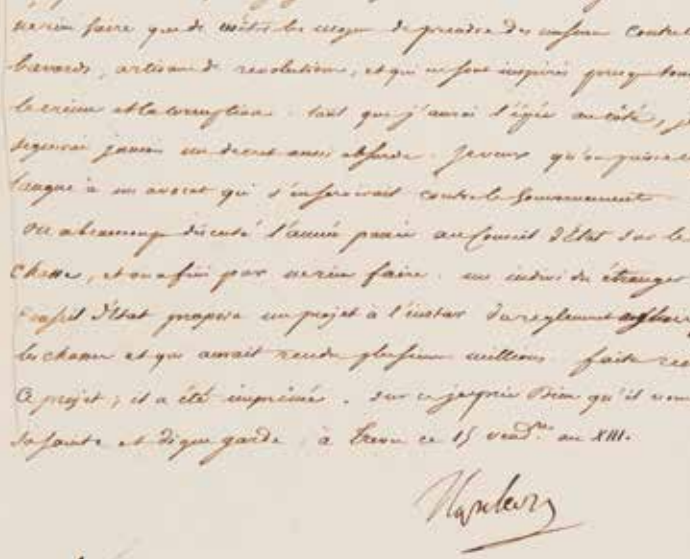 ne rien faire que de mettre les moyens de prendre des mesures contre l
bavards, artisans de révolutions, et qui ne sont inspirés presque tous
le crime et la corruption. tant que j'aurai l'épée au côté, je
signerai jamais un decret aussi absurde. Je veux qu'on puisse c
langue à un avocat qui s'en servirait contre le Gouvernement
On a beaucoup discuté l'année passée au Conseil d'Etat sur le
Chasse, et on a fini par ne rien faire. un individu étranger
Conseil d'Etat proposa un projet à l'instar du reglement
les chasses et qui aurait rendu plusieurs millions. faite
Ce projet; il a été imprimé. sur ce je prie Dieu qu'il vous
sa sainte et digne garde, à Treves ce 15 vend.re an XIII.
Napoleon